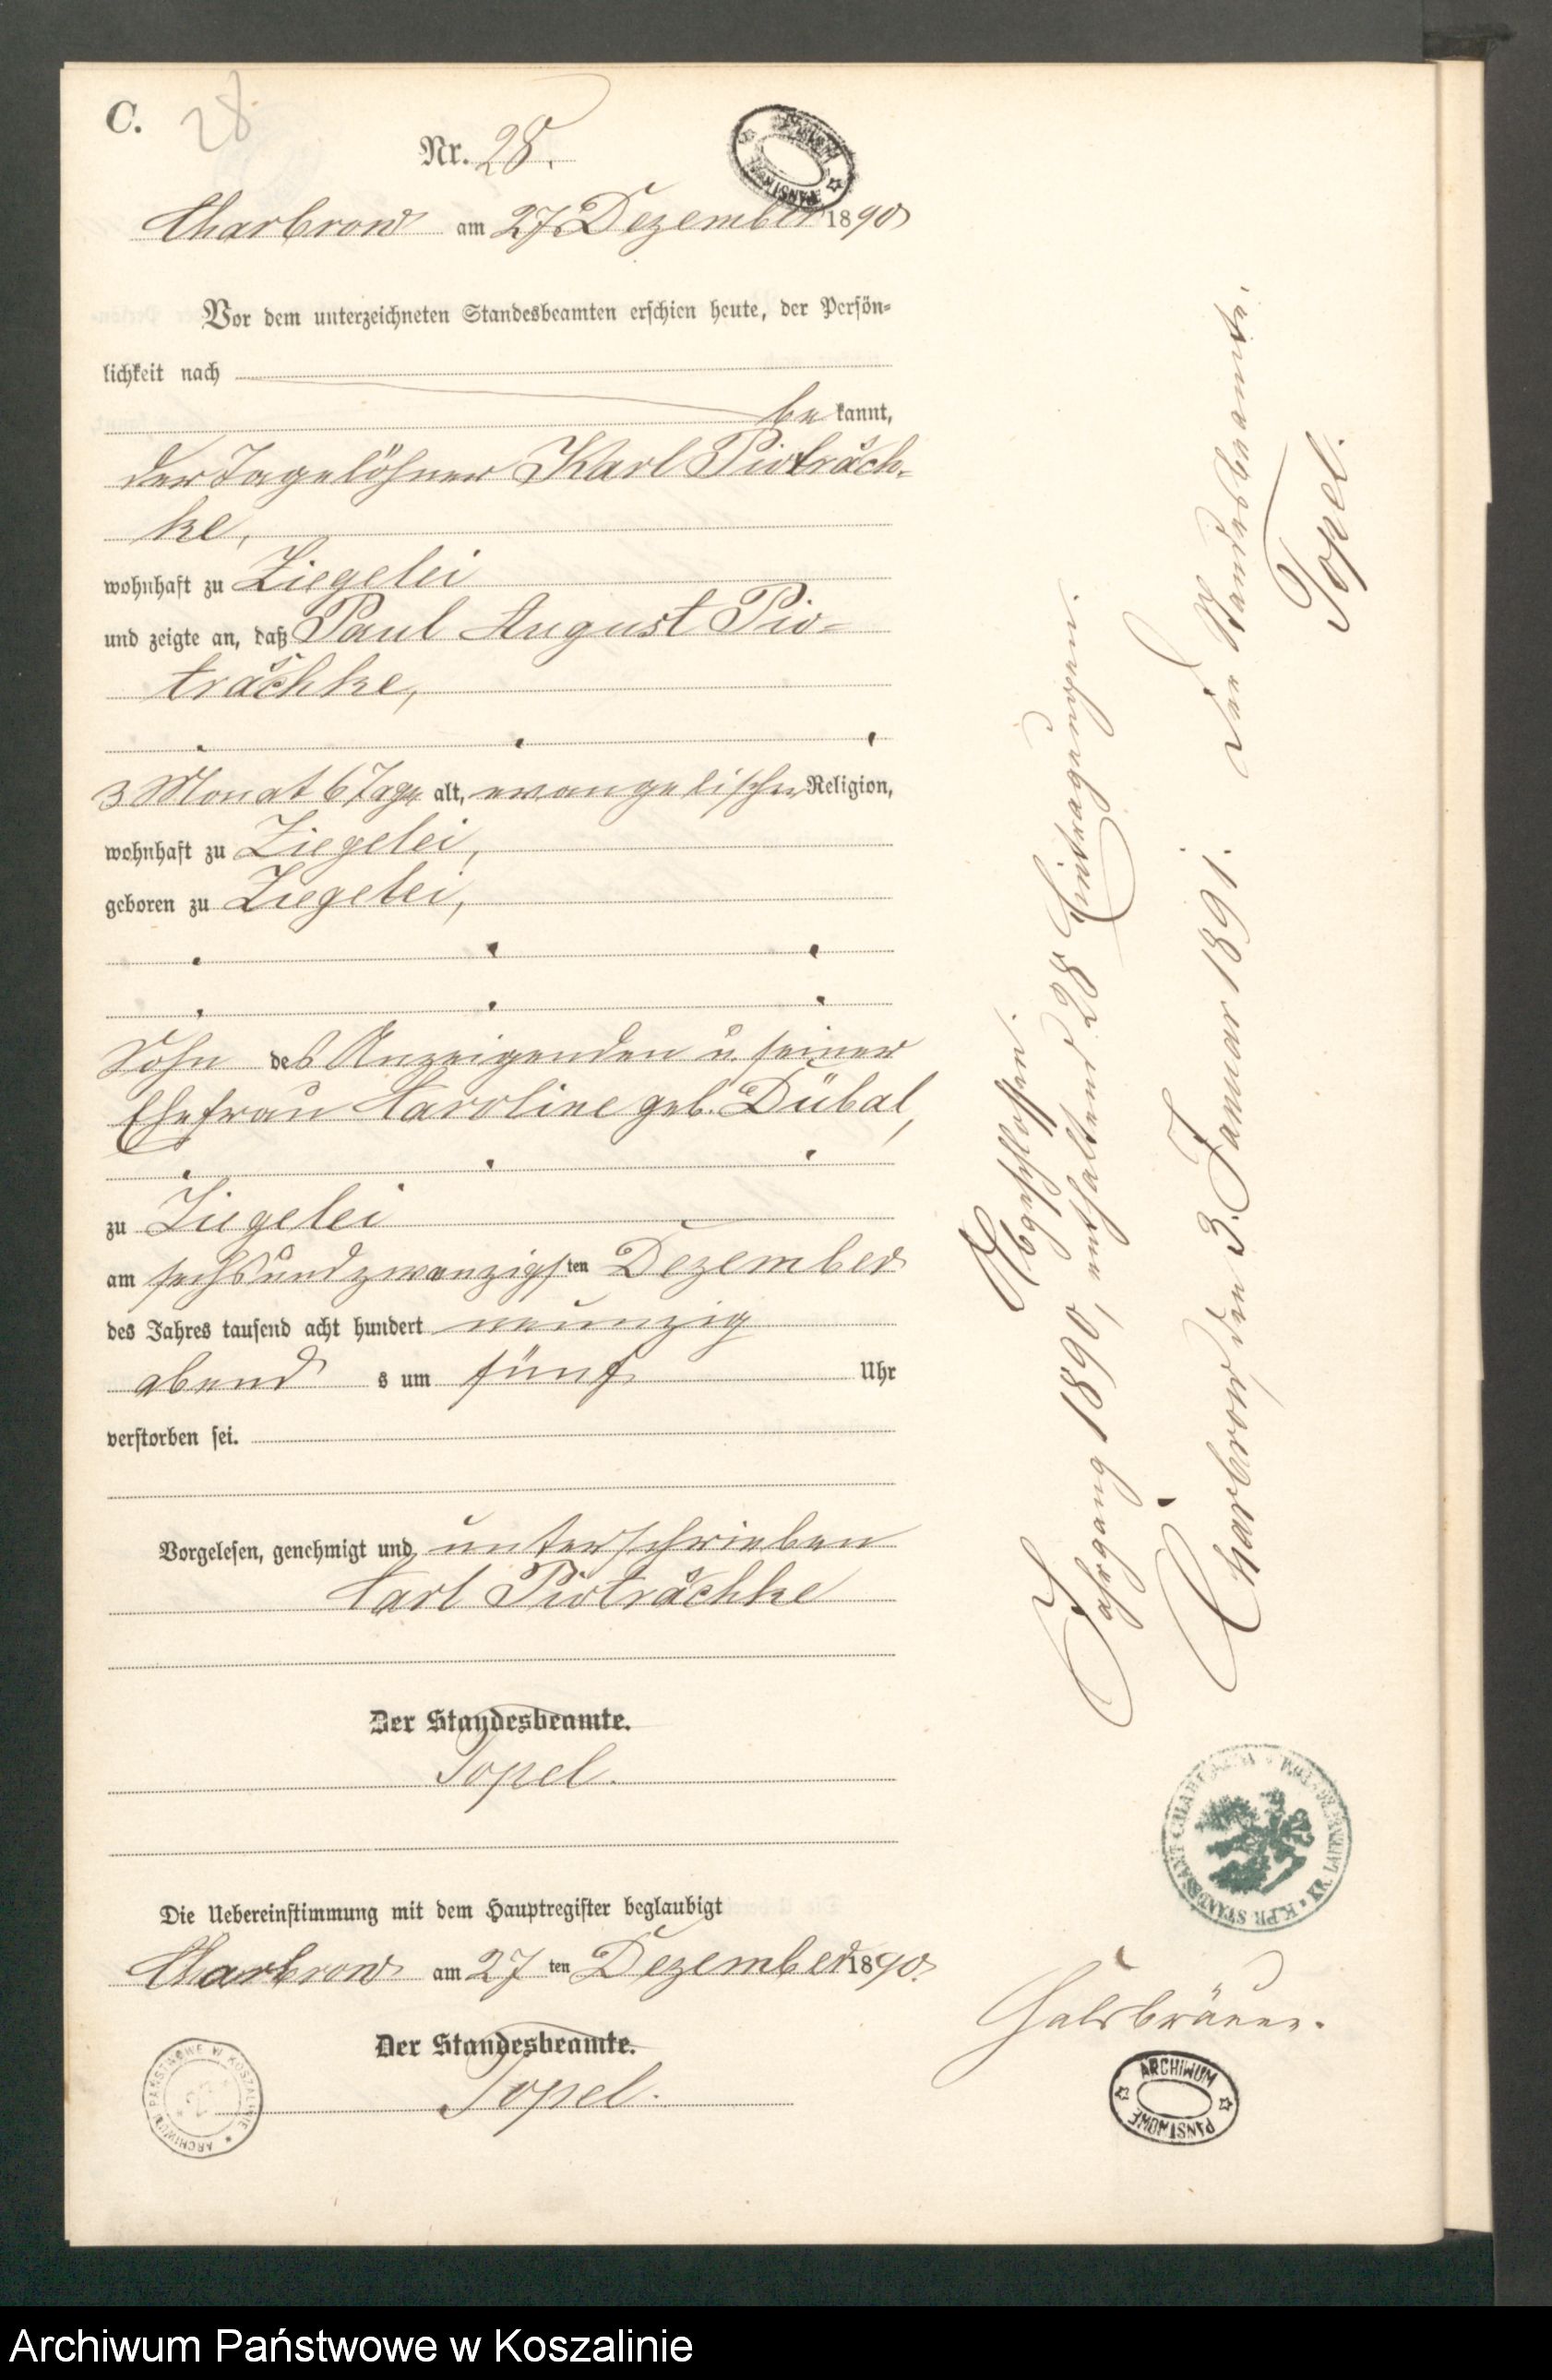 C. 28.
Nr. 28.
Charbrow am 27. Dezember 1890
Vor dem unterzeichneten Standesbeamten erschien heute, der Persön-
lichkeit nach
be kannt,
der Tagelöhner Karl Piotrӑch-
ke,
wohnhaft zu Ziegelei
und zeigte an, daß Paul August Pio-
trӑchke,
3 Monat 6 Tage alt, evangelischer Religion,
wohnhaft zu Ziegelei,
geboren zu Ziegelei,
Sohn des Anzeigenden u. seiner
Ehefrau Karoline geb. Dübal,
zu Ziegelei
am sechsundzwanzigsten Dezember
des Jahres tausend acht hundert neunzig
abend s um fünf Uhr
verstorben sei.
Vorgelesen, genehmigt und unterschrieben
Karl Piotrӑchke
Der Standesbeamte.
Topel.
Die Uebereinstimmung mit dem Hauptregister beglaubigt
Charbrow am 27 ten Dezember 1890.
Der Standesbeamte.
Topel.
Abgeschlossen.
Jahrgang 1890, enthaltend 28 Eintragungen.
Charbrow, den 3. Januar 1891. Der Standesbeamte.
Topel.
K. PR. STANDESAMT CHARBROW KR. LAUENBURG
ARCHIWUM
PAŃSTWOWE
ARCHIWUM PAŃSTWOWE W KOSZALINIE
ARCHIWUM
PAŃSTWOWE
Archiwum Państwowe w Koszalinie